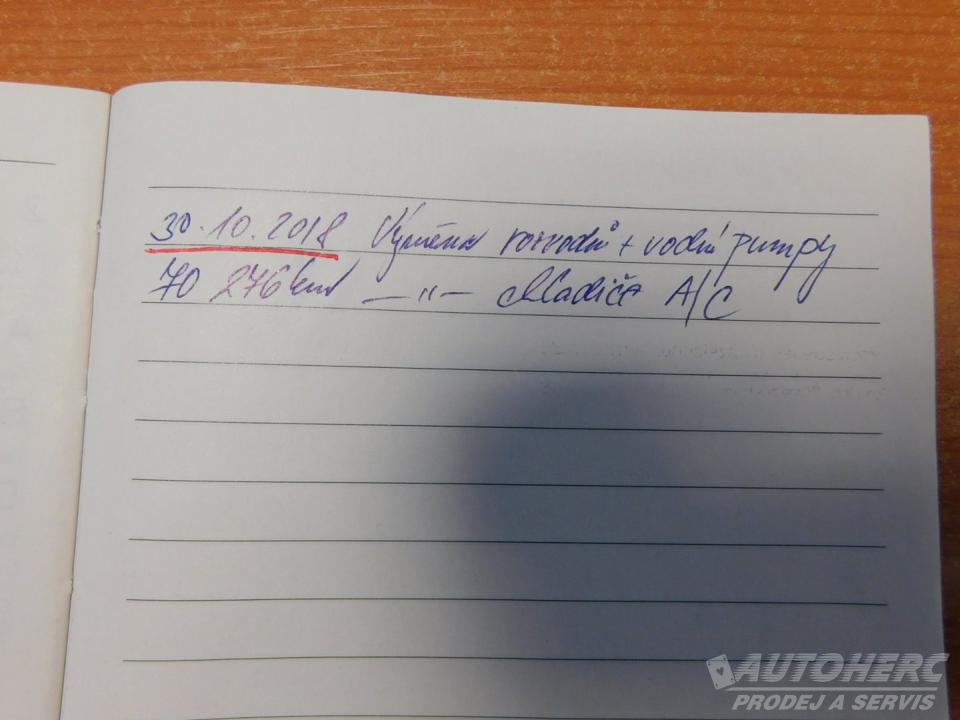 30.10.2018 Výměna rozvodů + vodní pumpy
70 276 km —"— chladiče A/C
AUTOHERC
PRODEJ A SERVIS